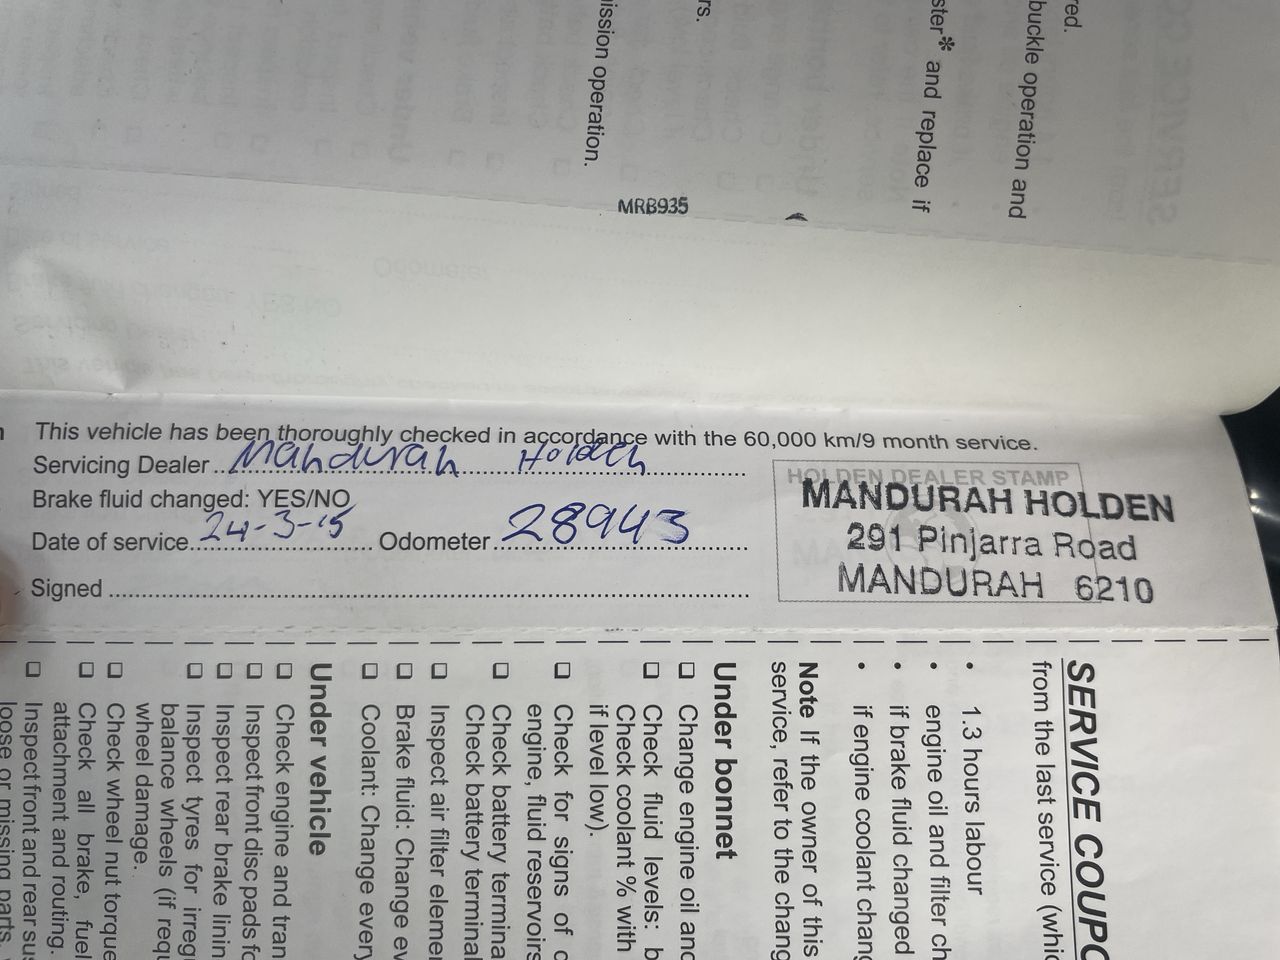 rs.
ission operation.
red.
buckle operation and
ster* and replace if
MRB935
This vehicle has been thoroughly checked in accordance with the 60,000 km/9 month service.
Servicing Dealer Mandurah Holden
Brake fluid changed: YES/NO
Date of service 24-3-15 Odometer 28943
Signed
HOLDEN DEALER STAMP
MANDURAH HOLDEN
291 Pinjarra Road
MANDURAH 6210
SERVICE COUPO
from the last service (whic
• 1.3 hours labour
• engine oil and filter ch
• if brake fluid changed
• if engine coolant chang
Note If the owner of this
service, refer to the chang
Under bonnet
❑ Change engine oil and
❑ Check fluid levels: b
Check coolant % with
if level low).
❑ Check for signs of
engine, fluid reservoirs
❑ Check battery termina
Check battery terminal
❑ Inspect air filter elemen
❑ Brake fluid: Change ev
❑ Coolant: Change every
Under vehicle
❑ Check engine and tran
❑ Inspect front disc pads fo
❑ Inspect rear brake linin
❑ Inspect tyres for irregu
balance wheels (if requ
wheel damage.
❑ Check wheel nut torque
❑ Check all brake, fuel
attachment and routing.
❑ Inspect front and rear sus
loose or missing parts,